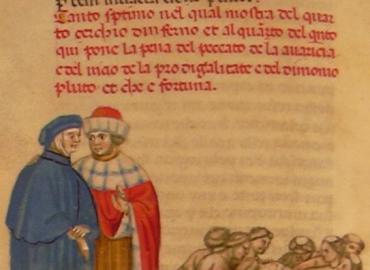 Canto septimo nel qual mostra del quar
to cerchio dinferno et alquãto del qnto
qui pone la pena del peccato de la auaricia
e del uicio de la prodigalitate e del dimonio
pluto et che e fortuna.